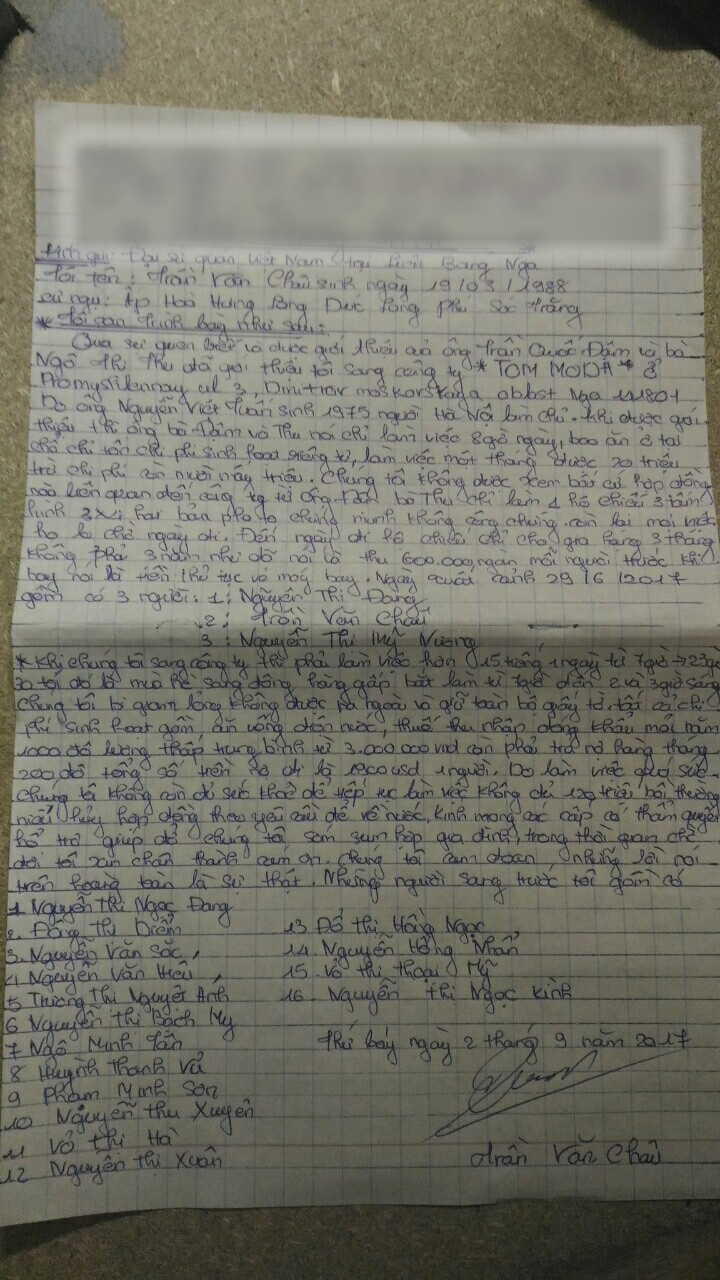 Kính gửi: Đại sứ quán Việt Nam tại Liên Bang Nga
Tôi tên: Trần Văn Chấu sinh ngày 19/03/1988
cư ngụ: Ấp Hoà Hưng Long Đức Long Phú Sóc Trăng
* Tôi xin trình bày như sau:
Qua sự quen biết và được giới thiệu của ông Trần Quốc Đậm và bà
Ngô Thị Thu đã giới thiệu tôi sang công ty * TOM MODA * ở
ul 3, Dmitrov moskovskaya Nga 141801
Do ông Nguyễn Viết Tuấn sinh 1975 người Hà Nội làm chủ. Khi được giới
thiệu thì ông bà Đậm và Thu nói chỉ làm việc 8 giờ ngày, bao ăn ở tại
chổ chỉ tốn chi phí sinh hoạt riêng tư, làm việc một tháng được 20 triệu
trừ chi phí còn mười mấy triệu. Chúng tôi không được xem bất cứ hợp đồng
nào liên quan đến công ty từ ông Đậm bà Thu chỉ làm 1 hộ chiếu 3 tấm
hình 3x4 hai bản photo chứng minh không công chứng còn lại mọi việc
họ lo chờ ngày đi. Đến ngày đi hộ chiếu chỉ cho gia hạng 3 tháng
không phải 3 năm như đã nói là thu 600.000 ngàn mỗi người trước khi
bay nói là tiền thủ tục và máy bay. Ngày xuất cảnh 29/6/2017
gồm có 3 người: 1: Nguyễn Thị Đang
2: Trần Văn Chấu
3: Nguyễn Thị Mỹ Nương
* Khi chúng tôi sang công ty thì phải làm việc hơn 15 tiếng 1 ngày từ 7 giờ → 23 giờ
30 tối đó là mùa hè sang đông hàng gấp bắt làm từ 7 giờ đến 2 và 3 giờ sáng
chúng tôi bị giam lỏng không được ra ngoài và giữ toàn bộ giấy tờ tất cả chi
phí sinh hoạt gồm ăn uống điện nước, thuế thu nhập đóng khẩu mỗi năm
1000 đô lương thấp trung bình từ 3.000.000 vnd còn phải trả nợ hàng tháng
200 đô tổng số trên nợ đi là 1900 usd 1 người. Do làm việc quá sức
chúng tôi không còn đủ sức khoẻ để tiếp tục làm việc không đủ 120 triệu bồi thường
hủy hợp đồng theo yêu cầu để về nước, kính mong các cấp có thẩm quyền
hổ trợ giúp đỡ chúng tôi sớm sum họp gia đình, trong thời gian chờ
đợi tôi xin chân thành cảm ơn. chúng tôi cam đoan, những lời nói
trên hoàng toàn là sự thật. Những người sang trước tôi gồm có
1 Nguyễn Thị Ngọc Đang
2. Đồng Thị Diểm
3. Nguyễn Văn Sắc,
4. Nguyễn Văn Hiếu,
5 Trương Thị Nguyệt Anh
6 Nguyễn Thị Bạch My
7 Ngô Minh Tấn
8 Huỳnh Thanh Vủ
9 Phạm Minh Sơn
10 Nguyễn thu Xuyên
11 Võ Thị Hà
12 Nguyễn Thị Xuân
13 Đổ Thị Hồng Ngọc
14. Nguyễn Hồng Nhẩn
15. Võ thị thoại Mỹ
16. Nguyễn thị Ngọc Kình
Thứ bảy ngày 2 tháng 9 năm 2017
Trần Văn Chấu